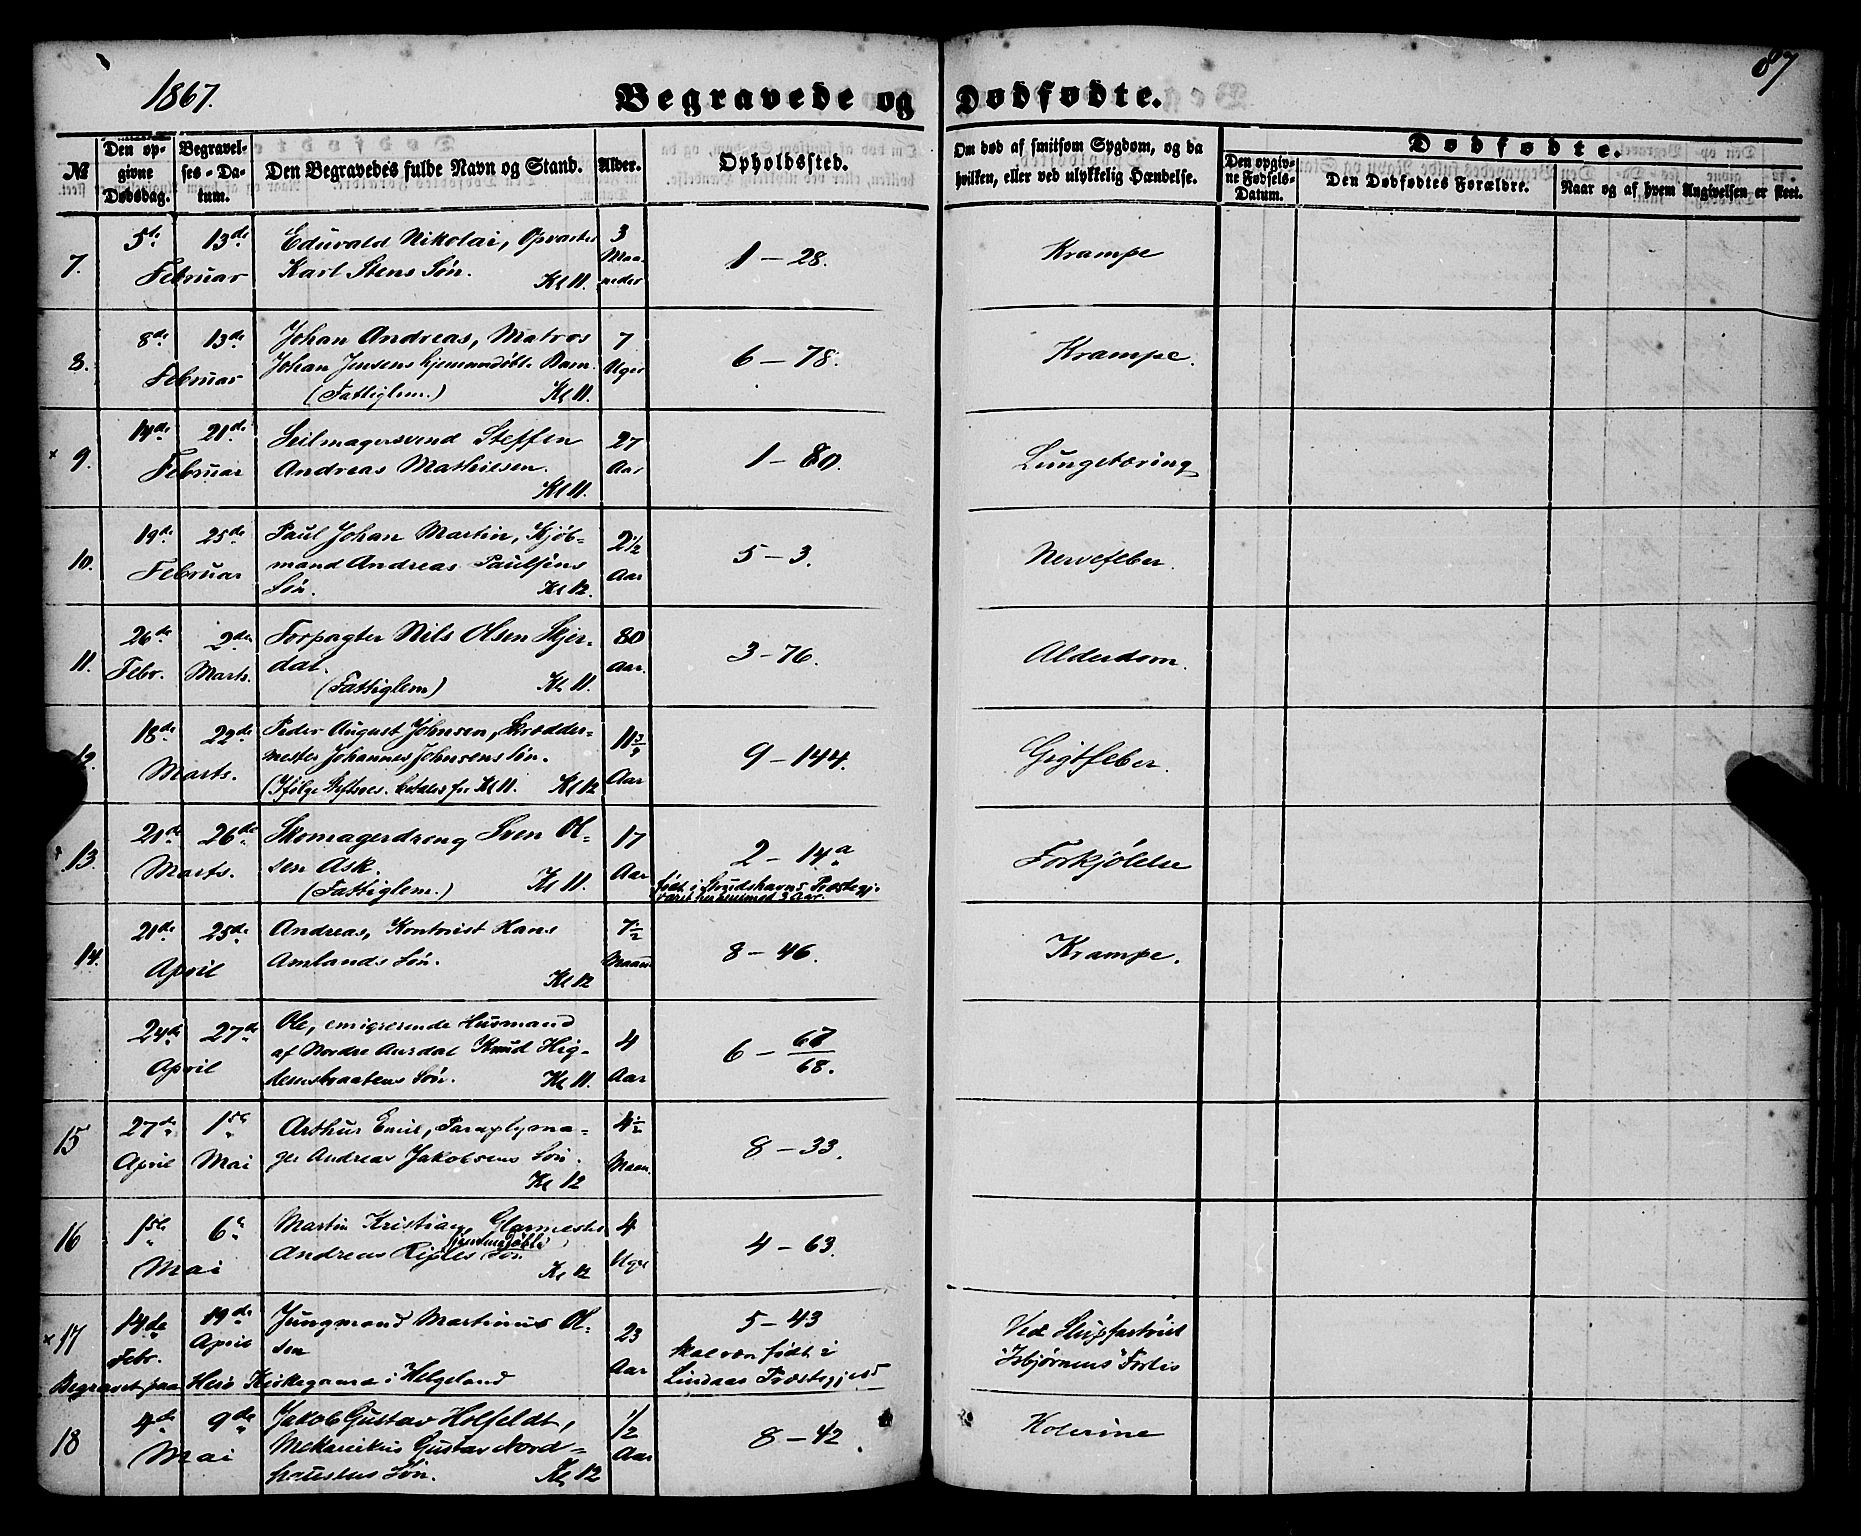 1867.
87
Begravede og Dødfødte.
№
Den opgivne Dødsdag.
Begravelses-Datum.
Den Begravedes fulde Navn og Stand.
Alder.
Opholdssted.
Om død af smitsom Sygdom, og da hvilken, eller ved ulykkelig Hændelse.
Dødfødte.
Den opgivne Fødsels-Datum.
Den Dødfødtes Forældre.
Naar og af hvem Angivelsen er skeet.
7. 5te 13de Februar
Eduvald Nikolai, Opvarter
Karl Stens Søn. Kl 11.
3 Maaneder
1 - 28.
Krampe
8. 8de 13de Februar
Johan Andreas, Matros
Johan Jensens hjemmedøbte Barn.
(Fattiglem.) Kl 11.
7 Uger
6 - 78.
Krampe.
× 9. 14de 21de Februar
Seilmagersvend Steffen
Andreas Mathiesen.
Kl 11.
27 Aar
1 - 80.
Lungetæring
10. 19de 25de Februar
Paul Johan Martin, Kjøb-
mand Andreas Paulsens
Søn. Kl 12.
2½ Aar
5 - 3.
Nervefeber.
11. 26de Febr. 2den Marts.
Forpagter Nils Olsen Skjer-
dal.
(Fattiglem) Kl 11.
80 Aar.
3 - 76.
Alderdom.
12. 18de 22de Marts.
Peder August Johnsen, Skrædder-
mester Johannes Johnsens Søn.
(Ifølge betales for Kl 11. Kl 12
11 Aar
9 - 144.
Gigtfeber.
13. 21de 26de Marts.
Skomagerdreng Sven Ol-
sen Ask.
(Fattiglem.) Kl 11.
17 Aar
2 - 14a
født i Præstegj.
været her 3 Aar.
Forkjølelse
14. 21de 25de April
Andreas, Kontorist Hans
Amlands Søn.
Kl 12
7½ Maan.
8 - 46.
Krampe.
24de 27de April
Ole, emigrerende Husmand
af Nordre Aurdal Knud Hig-
Søn. Kl 11.
4 Aar
6 - 67/68.
15 27de April 1ste Mai
Arthur Emil, Paraplyma-
ger Andreas Jakobsens Søn.
Kl 12
4½ Maan.
8 - 33.
16 1ste 6te Mai
Martin Kristian, Glarmester
hjemmedøbte
Andreas Riples Søn
Kl 12
4 Uger
4 - 63.
× 17 14de Febr. 19de April
Jungmand Martinus Ol-
sen
Begravet paa Herø Kirkegaard i Helgeland
23 Aar
5 - 43
skal være født i
Lindaas Præstegjeld
Ved Skipfartøiet
"Isbjørnens" Forlis
18 4de 9de Mai
Jakob Gustav Holfeldt,
Mekanikus Gustav Nord-
Søn. Kl 12
½ Aar
8 - 42.
Kolerine